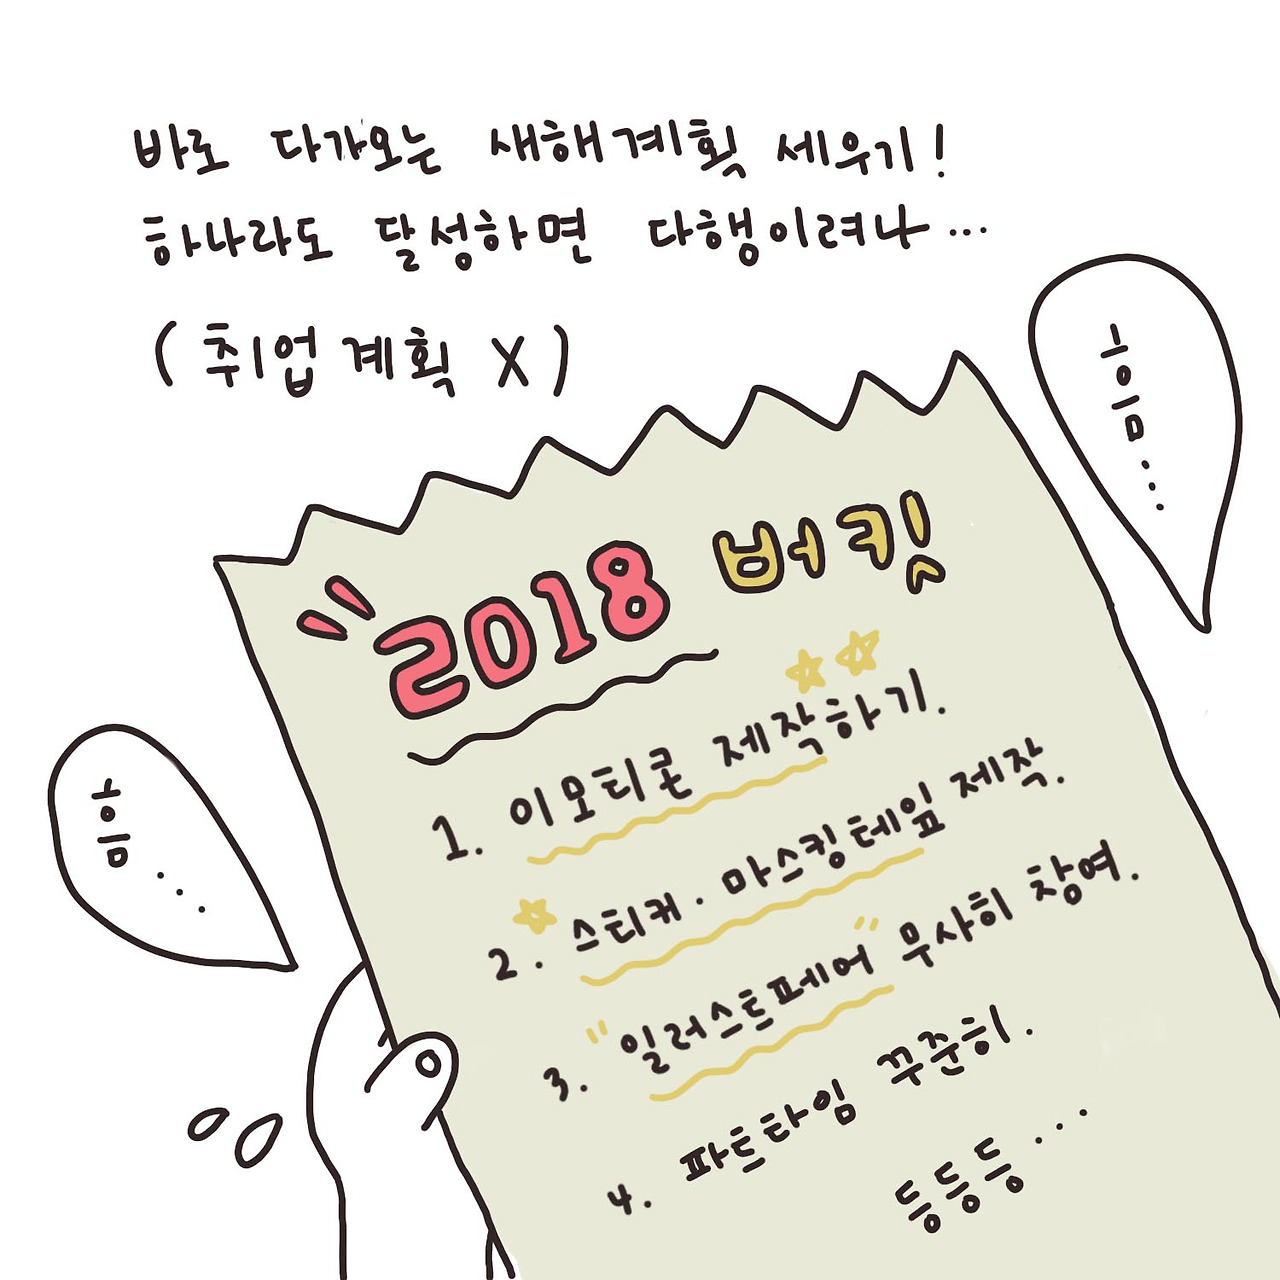 바로 다가오는 새해계획 세우기!
하나라도 달성하면 다행이려나...
(취업계획 X)
흐음...
2018 버킷
1. 이모티콘 제작하기.
2. 스티커·마스킹테잎 제작.
3. "일러스트페어" 무사히 참여.
4. 파트타임 꾸준히.
등등등...
흐음...